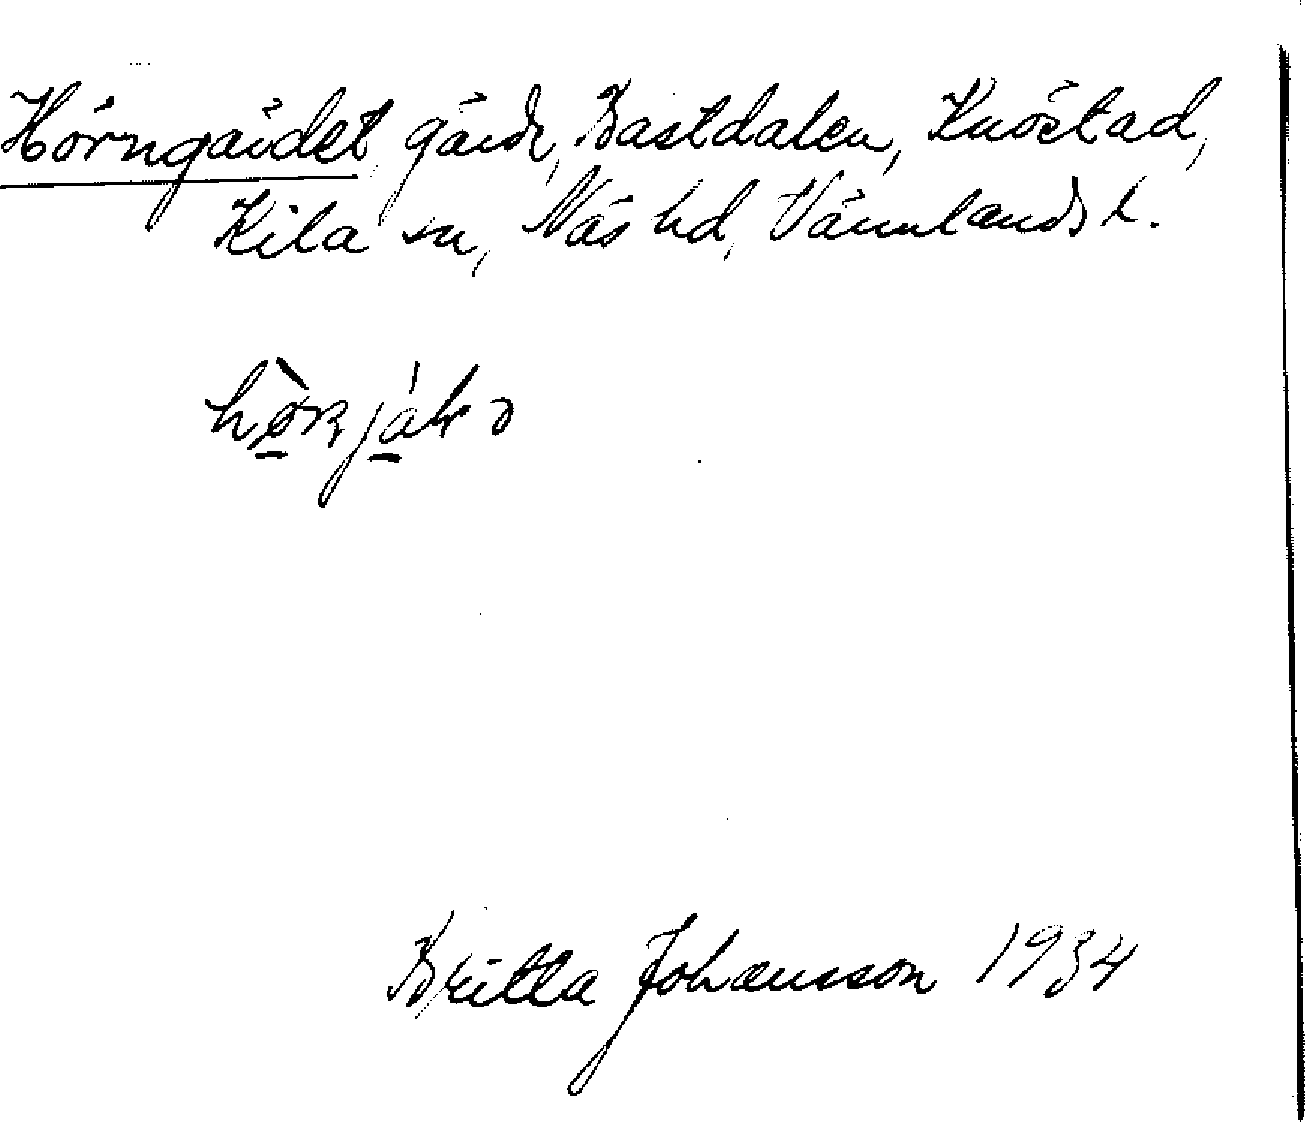 Hörngärdet, gärde, Bastdalen, Knöstad,
Kila sn, Näs hd, Värmlands l.
Britta Johansson 1934